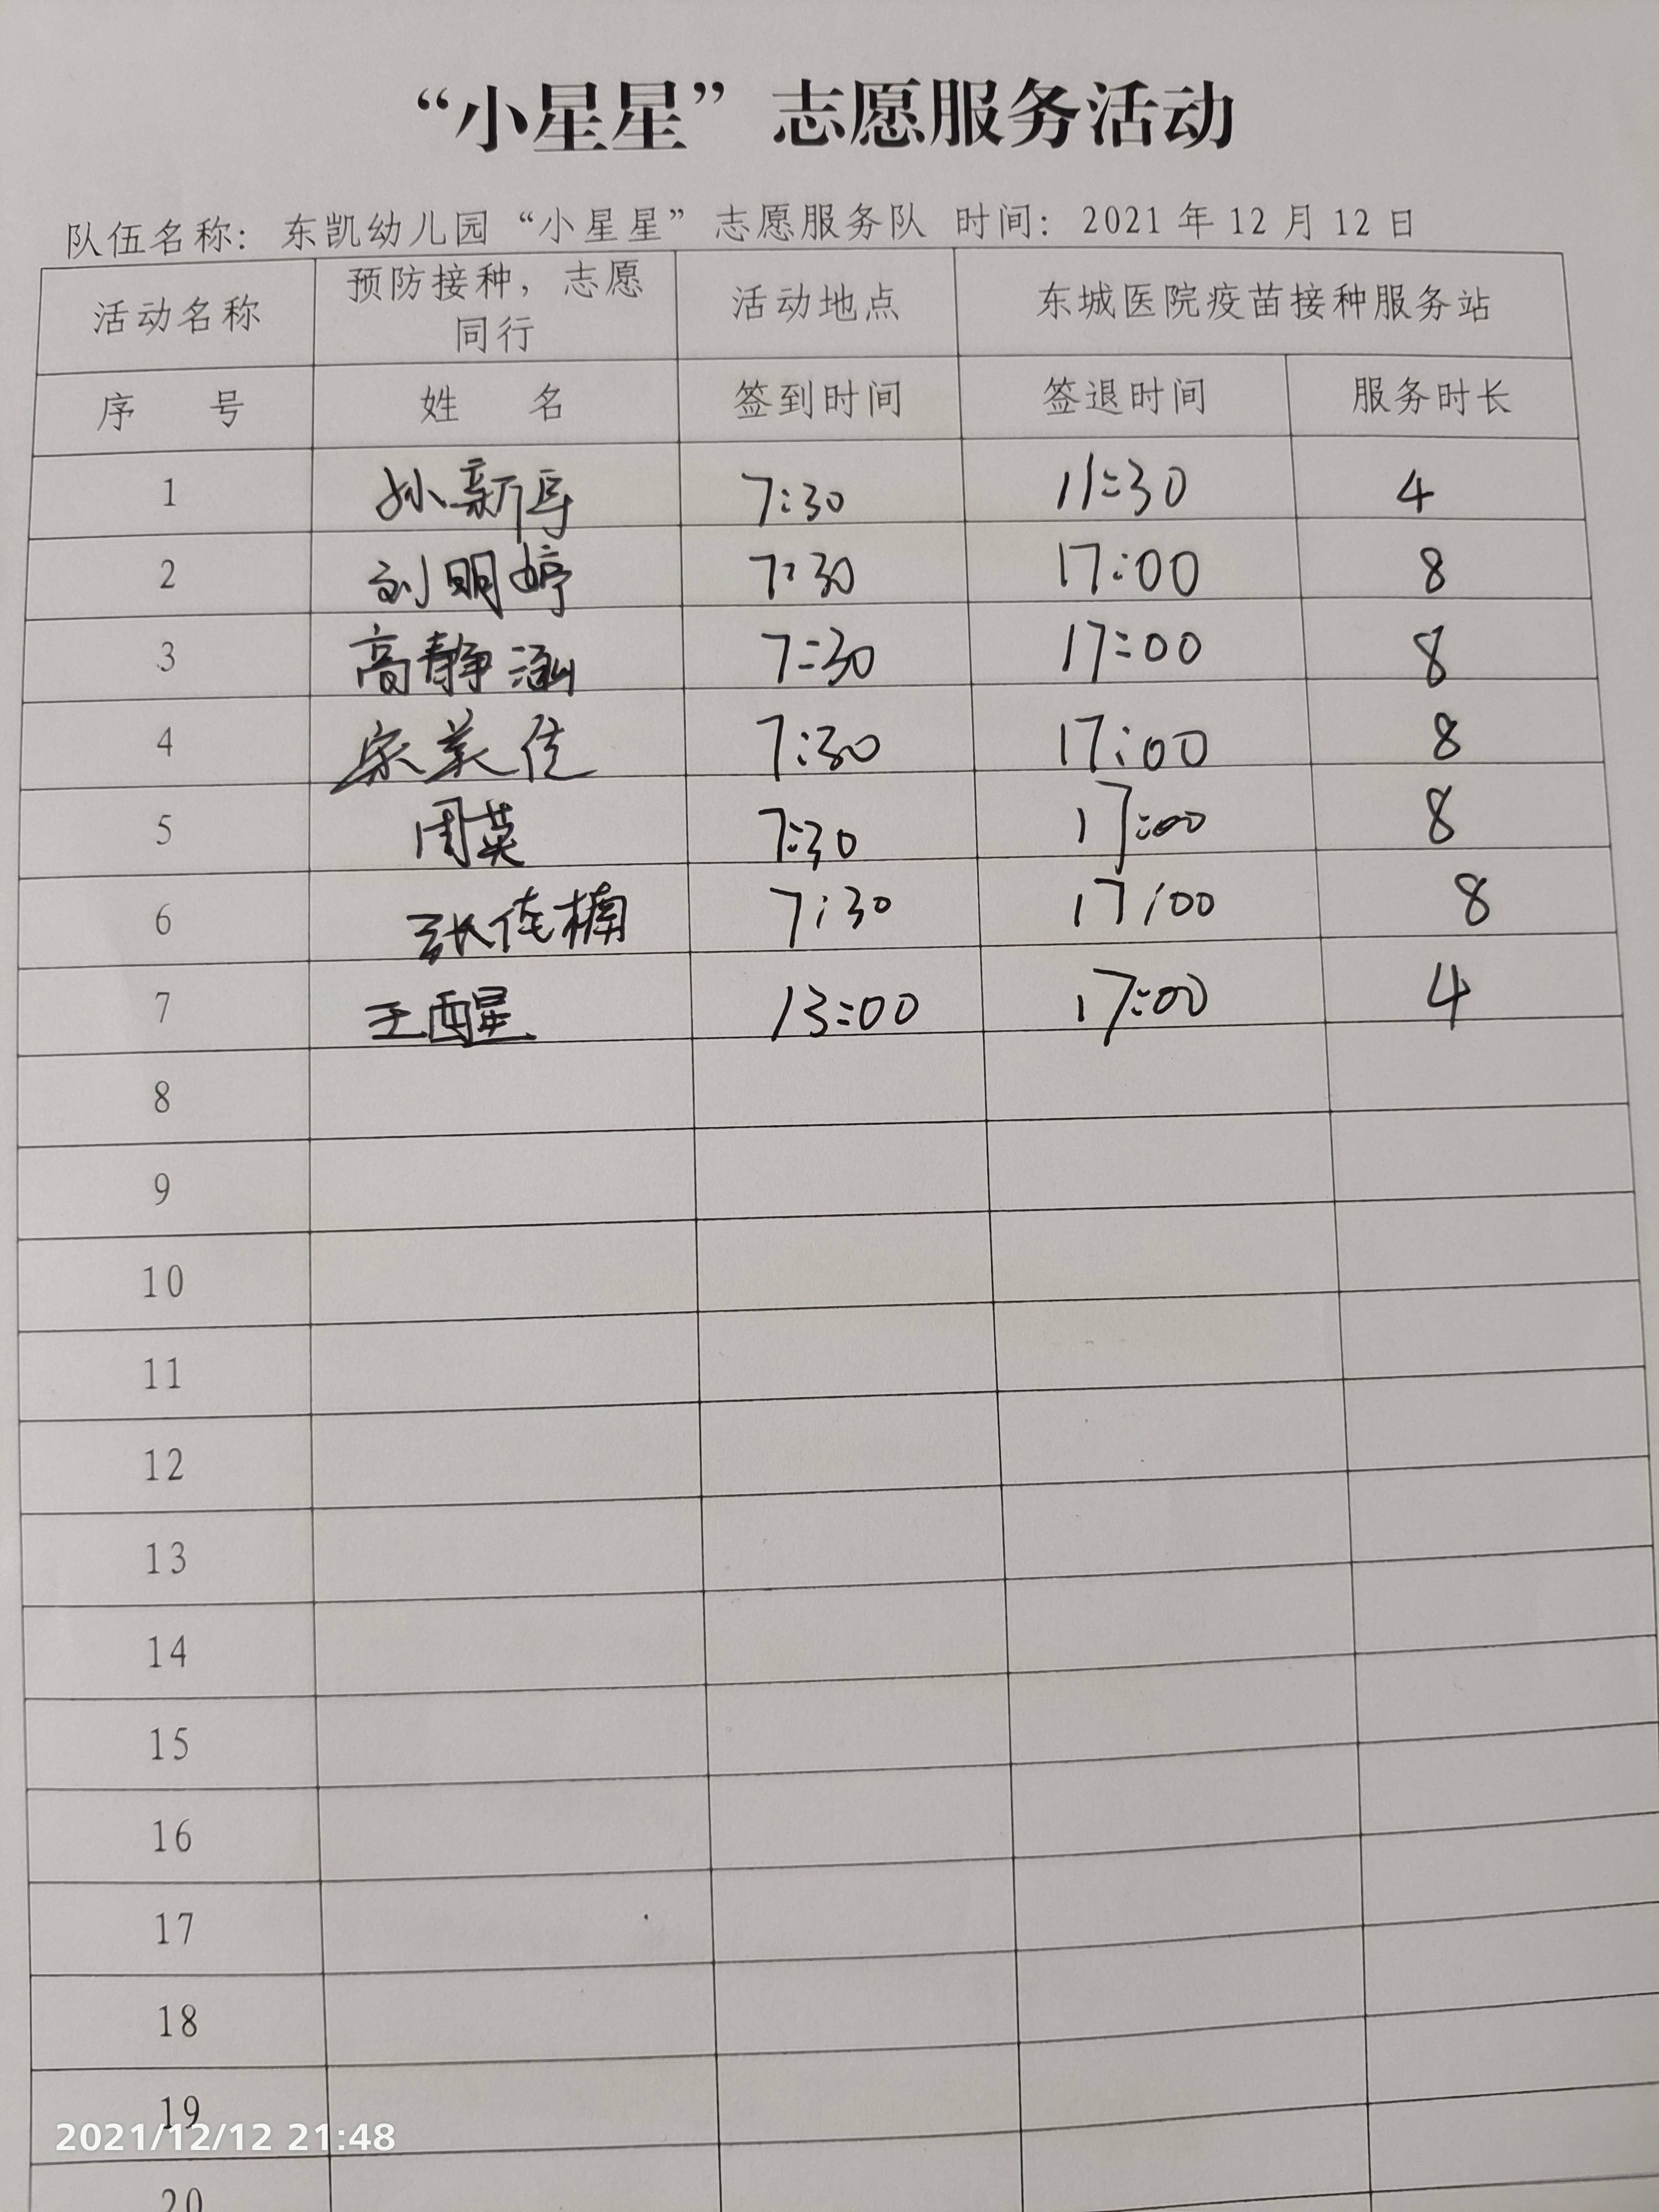 “小星星”志愿服务活动
队伍名称：东凯幼儿园“小星星”志愿服务队 时间：2021年12月12日
活动名称 预防接种，志愿同行 活动地点 东城医院疫苗接种服务站
序 号 姓 名 签到时间 签退时间 服务时长
1 孙新 7:30 11:30 4
2 刘明婷 7:30 17:00 8
3 高静涵 7:30 17:00 8
4 宋美佳 7:30 17:00 8
5 周英 7:30 17:00 8
6 张佳楠 7:30 17:00 8
7 王醒 13:00 17:00 4
8
9
10
11
12
13
14
15
16
17
18
19
2021/12/12 21:48
20